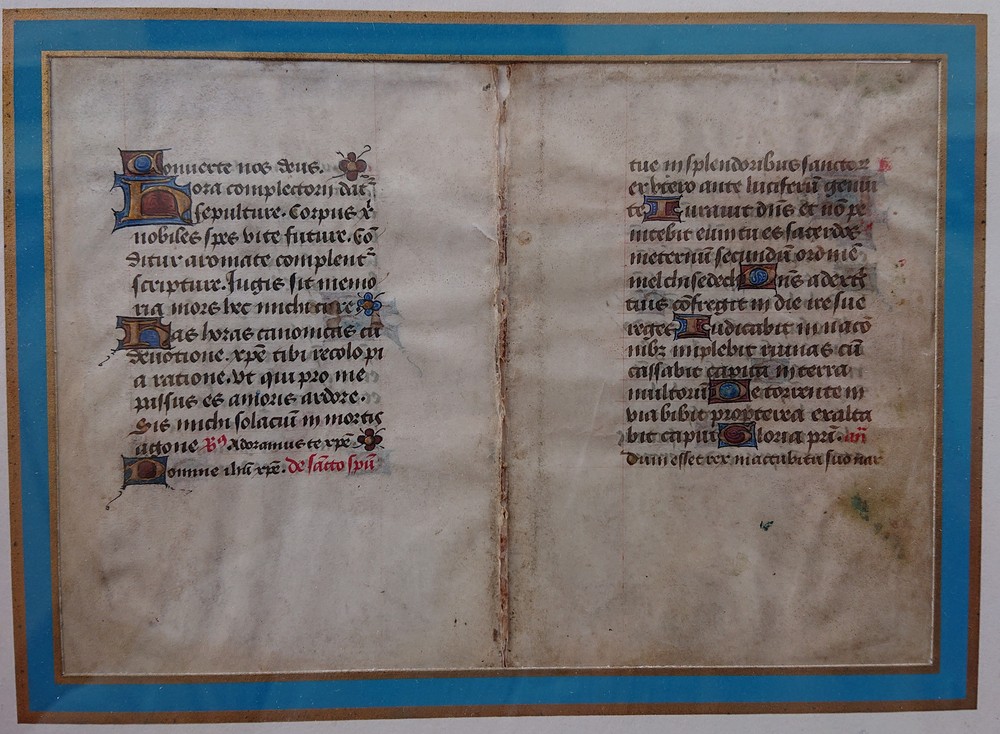 Conuerte nos deus.
Hora complectorii dat̃
sepulture. Corpus x̃
nobiles spes vite future. Cõ
ditur aromate complent᷑
scripture. Iugis sit memo
ria mors hec michi cure
Has horas canonicas cũ
deuotione. xpẽ tibi recolo pi
a ratione. Vt qui pro me
passus es amoris ardore.
Sis michi solaciũ in mortis
agone R⁹ Adoramus te xpẽ
Domine ihũ xpẽ. de sãcto spũ
tue in splendoribus sanctoꝝ
ex vtero ante luciferũ genui
te Iurauit dñs et nõ pe
nitebit eum tu es sacerdos
ineternum secundũ ordinẽ
melchisedech Dñs a dextr̃
tuis cõfregit in die ire sue
reges Iudicabit in nacõ
nibꝫ implebit ruinas cũ
cassabit capita in terra
multorũ De torrente in
via bibit propterea exalta
bit caput Gloria pr̃i. añ
Dum esset rex in accubitu suo nar